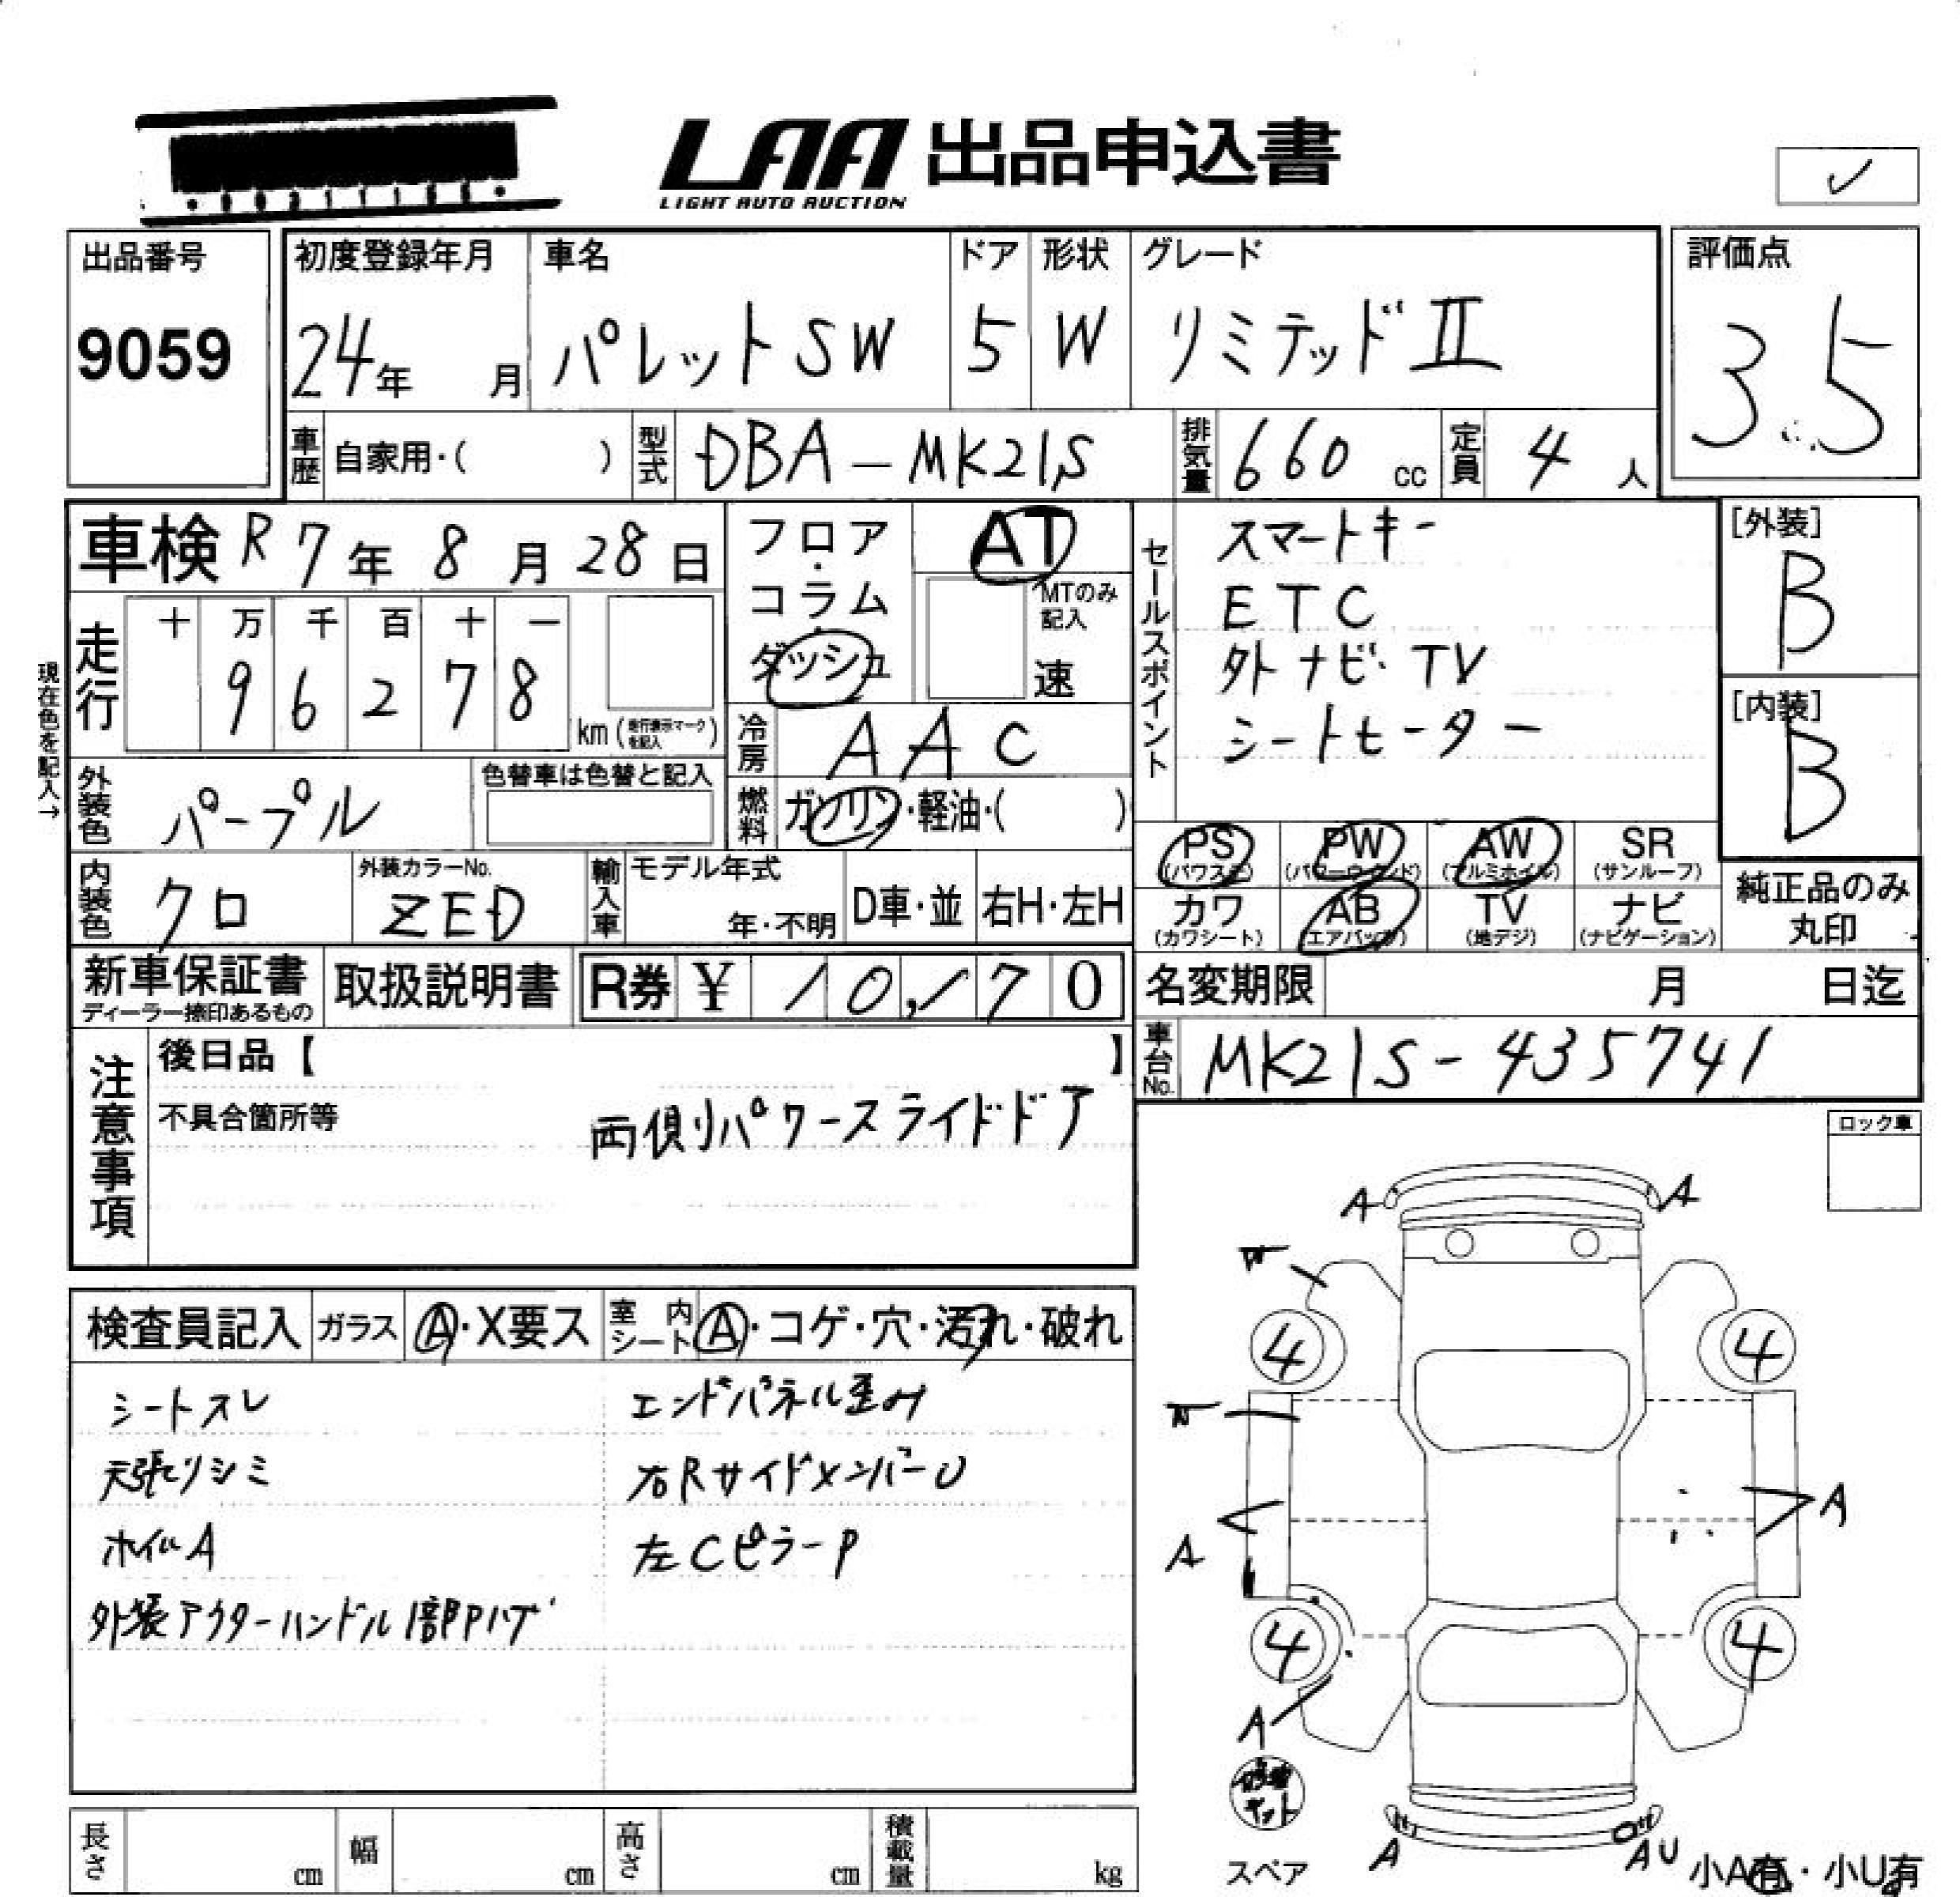 LAA 出品申込書
LIGHT AUTO AUCTION
出品番号
9059
初度登録年月
24年 月
車名
パレットSW
ドア
5
形状
W
グレード
リミテッドⅡ
評価点
3.5
車歴 自家用・( )
型式 DBA-MK21S
排気量 660 cc
定員 4 人
車検 R7年8月28日
フロア・コラム・ダッシュ
AT
MTのみ記入
速
セールスポイント
スマートキー
ETC
外ナビ・TV
シートヒーター
[外装]
B
[内装]
B
現在色を記入→
走行
十 万 千 百 十 一
9 6 2 7 8
km (走行表示マークを記入)
冷房 AAC
外装色 パープル
色替車は色替と記入
燃料 ガソリン・軽油・( )
PS (パワステ)
PW (パワーウインド)
AW (アルミホイル)
SR (サンルーフ)
カワ (カワシート)
AB (エアバッグ)
TV (地デジ)
ナビ (ナビゲーション)
純正品のみ
丸印
内装色 クロ
外装カラーNo.
ZED
輸入車
モデル年式
年・不明
D車・並
右H・左H
新車保証書
ディーラー捺印あるもの
取扱説明書
R券 ¥ 10,170
名変期限 月 日迄
車台No. MK21S-435741
注意事項
後日品【 】
不具合箇所等
両側パワースライドドア
ロック車
検査員記入
ガラス A・X要ス
室内シート A・コゲ・穴・汚れ・破れ
シートスレ
天張りシミ
ホイルA
外装アウターハンドル1部Pハゲ
エンドパネル歪み
右RサイドメンバーU
左CピラーP
A A
4 4
A A
4 4
A
キット
スペア
A AU
小A有・小U有
長さ cm
幅 cm
高さ cm
積載量 kg